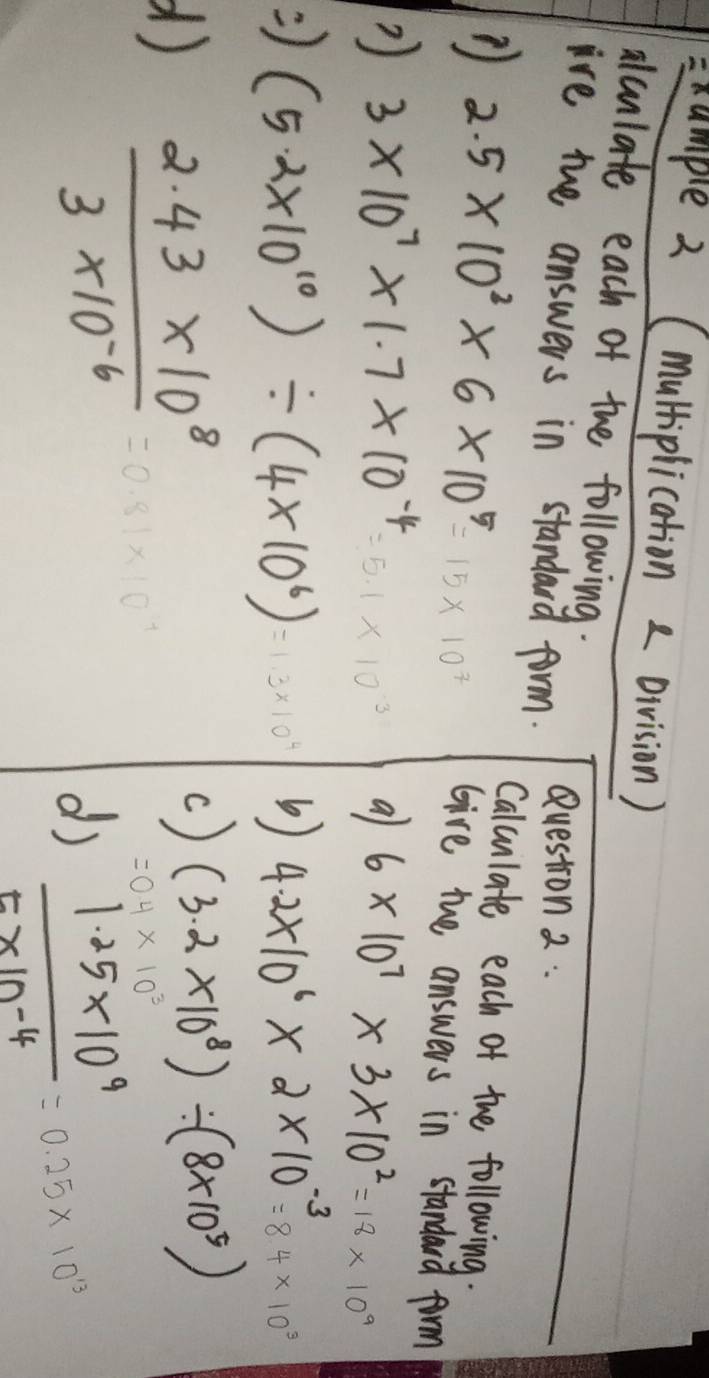 Example 2 (Multiplication & Division)
alculate each of the following.
ive the answers in standard form.
a) 2.5 × 10² × 6 × 10⁵ = 15 × 10⁷
3 × 10⁷ × 1.7 × 10⁻⁴ = 5.1 × 10⁻³
(5.2 × 10¹⁰) ÷ (4 × 10⁶) = 1.3 × 10⁴
d) 2.43 × 10⁸
3 × 10⁻⁶
= 0.81 × 10
Question 2:
Calculate each of the following.
Give the answers in standard form
a) 6 × 10⁷ × 3 × 10² = 18 × 10⁹
b) 4.2 × 10⁶ × 2 × 10⁻³ = 8.4 × 10³
c) (3.2 × 10⁸) ÷ (8 × 10⁵)
= 0.4 × 10³
d) 1.25 × 10⁹
5 × 10⁻⁴
= 0.25 × 10¹³